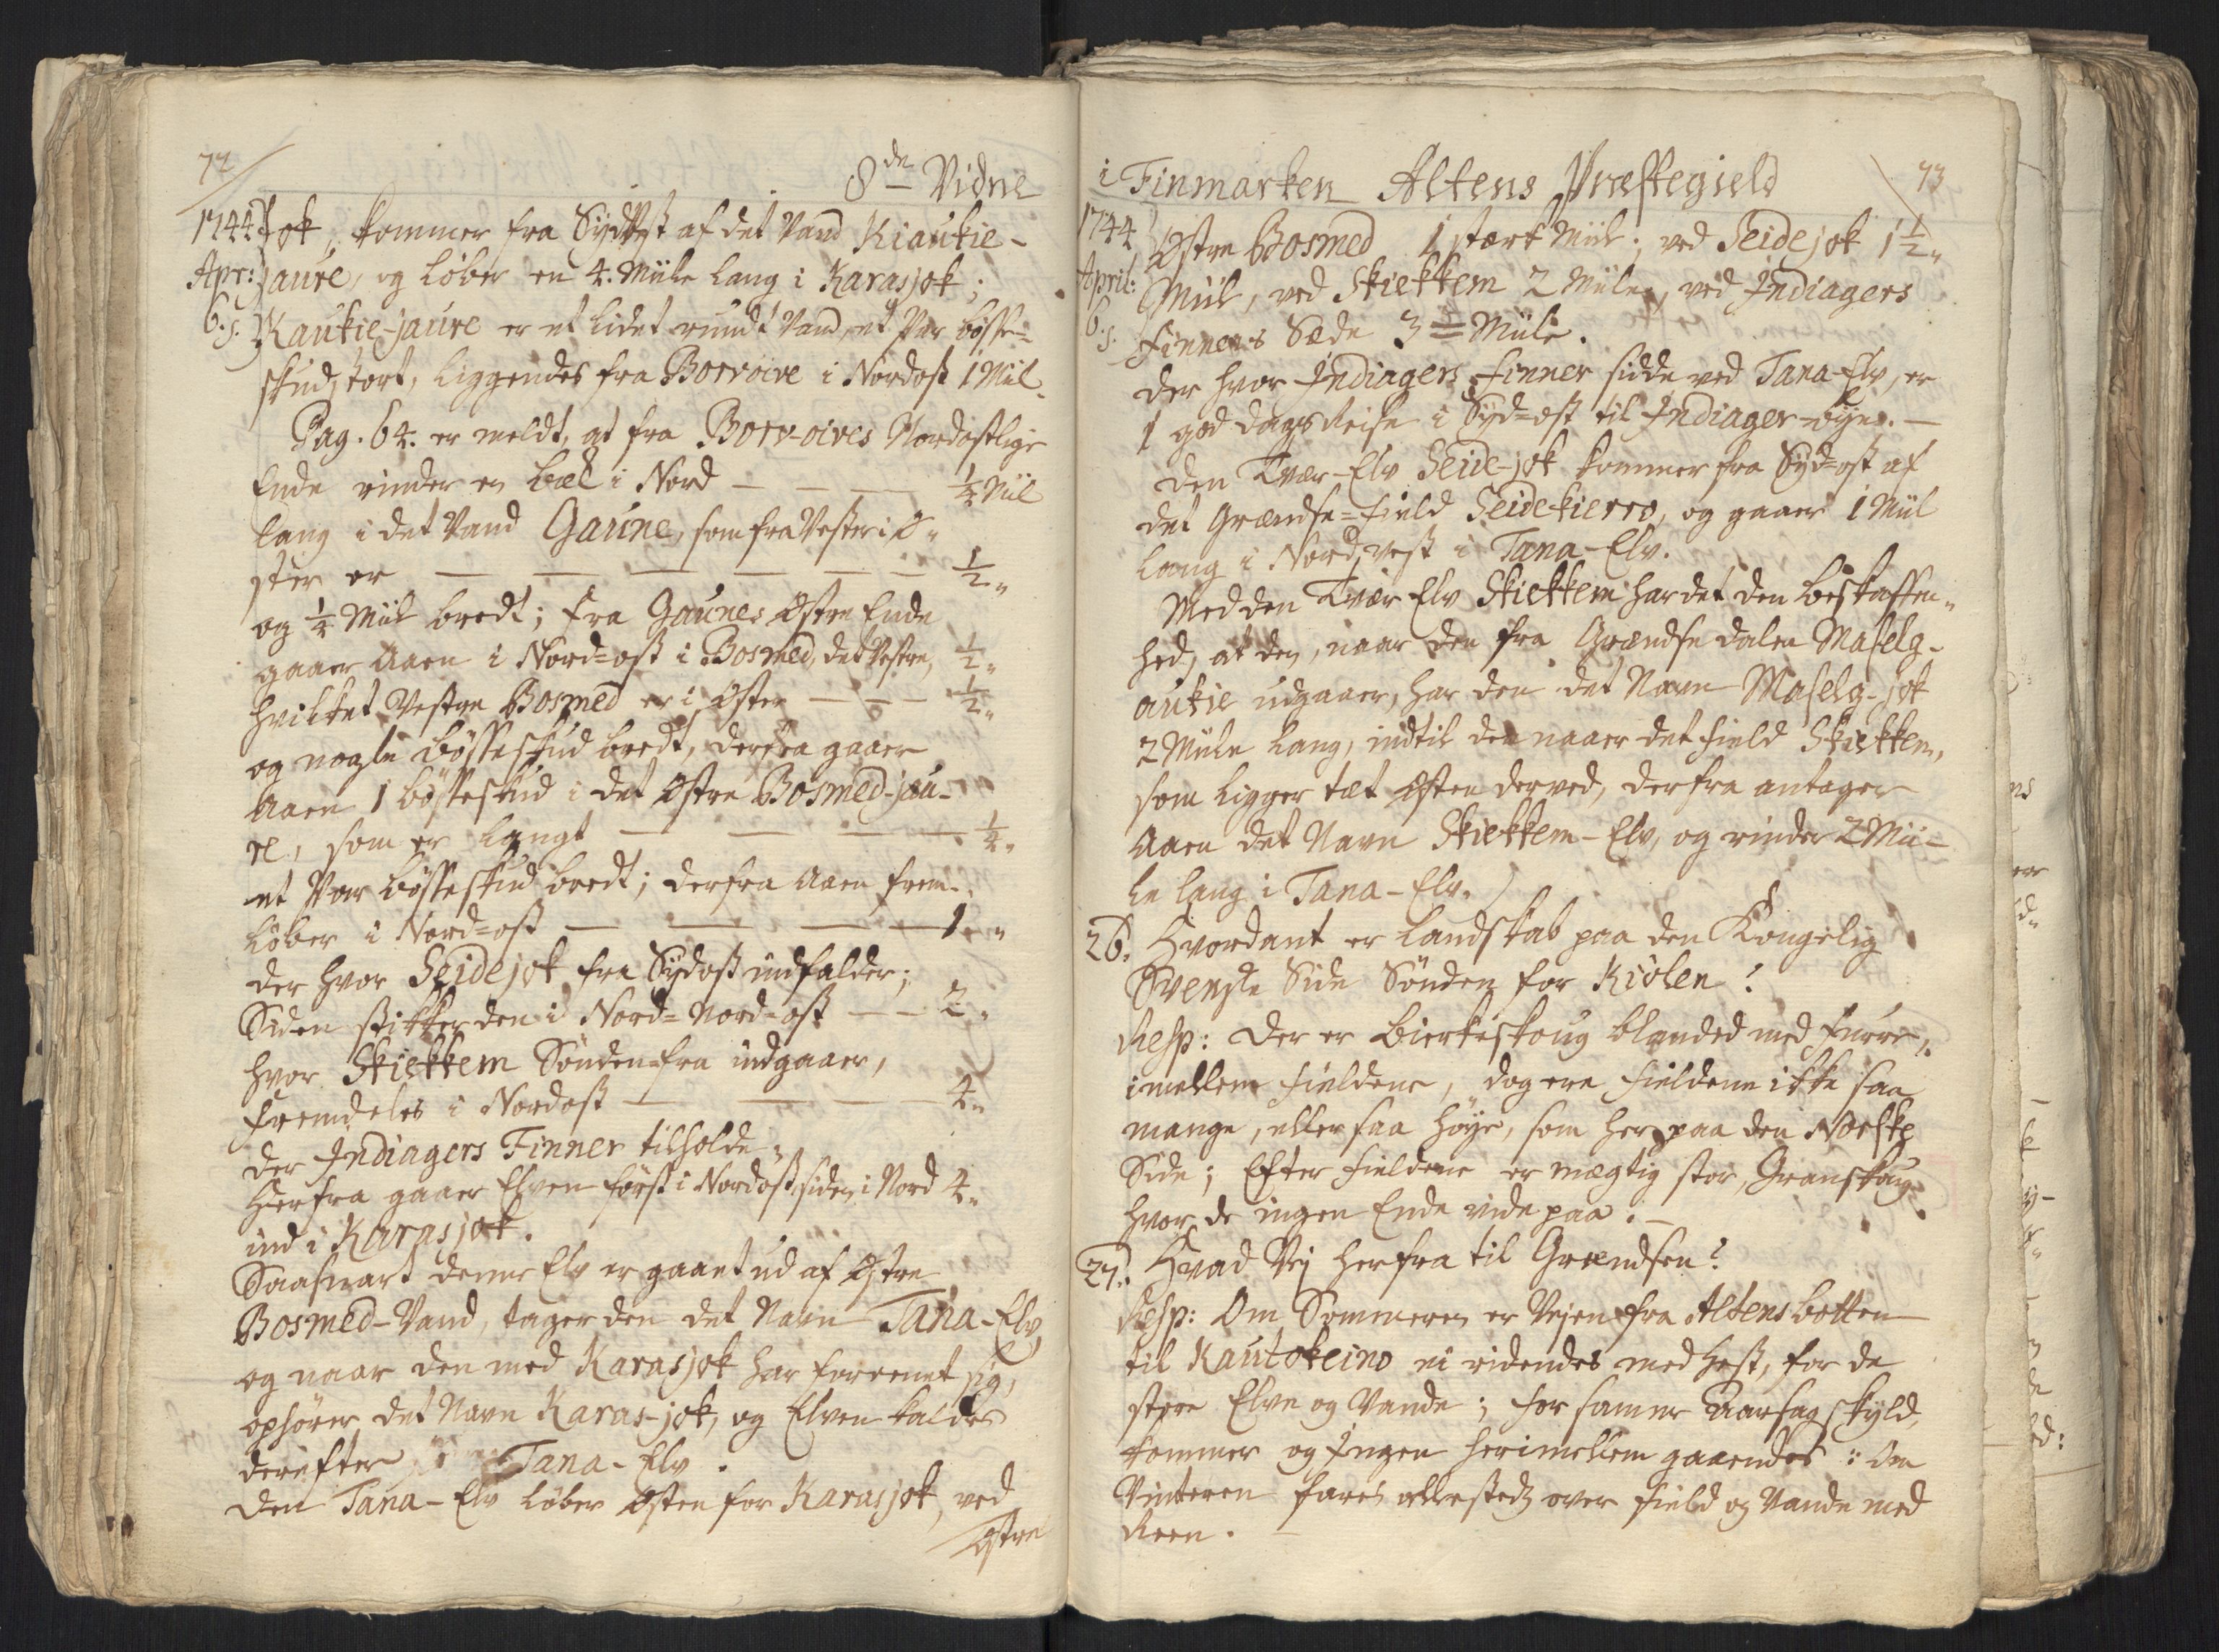 72
8de Vidne
1744 Jok, kommer fra Sydvest af det Vand Kiaukie-
Apr: jaure, og løber en 4. Miile lang i Karasjok;
6. s. Kaukie-jaure er et lidet rundt Vand, et Par bösse-
skud stort, liggendes fra Borvoive i Nordost 1 Miil.
Pag. 64. er meldt, at fra Borv-oives Nordostlige
Ende rinder en bæk i Nord — — — ¼ Miil
lang i det Vand Gaune, som fra Vester i Ø-
ster er — — — — — — ½ "
og ¼ Miil bredt; fra Gaunes Østre Ende
gaaer Aaen i Nord-ost i Bosmed, det Vestre, ½ "
hvilket Vestre Bosmed er i Øster — — — ½ "
og nogle bösseskud bredt, derfra gaaer
Aaen 1 bösseskud i det Østre Bosmed-jau-
re, som er langt — — — — ¼ "
et Par bösseskud bredt; derfra Aaen frem-
löber i Nord-ost — — — — 1 "
der hvor Seidejok fra Sydost indfalder;
Siden stikker den i Nord-Nord-ost — — 2 "
hvor Skiekkem Sönden fra indgaaer,
fremdeles i Nordost — — — 4 "
der Indiagers Finner tilholde;
Herfra gaaer Elven först i Nordost, siden i Nord 4 "
ind i Karasjok.
Saasnart denne Elv er gaaet ud af Østre
Bosmed-Vand, tager den det Navn Tana-Elv,
og naar den med Karasjok har forenet sig,
ophörer det Navn Karas-jok, og Elven kaldes
derefter Tana-Elv.
Den Tana-Elv löber Østen for Karasjok, ved
Østre
i Finmarken Altens Præstegield 73
1744 Østre Bosmed 1 stærk Miil; ved Seidejok 1½ "
April: Miil, ved Skiekkem 2 Miile, ved Indiagers
6. s. Finners Sæde 3 Miile.
Der hvor Indiagers Finner sidde ved Tana-Elv, er
1 god dags Reise i Syd-ost til Indiager-bye. —
Den Tvær-Elv Seide-jok kommer fra Syd-ost af
det Grændse-Field Seidekierro, og gaaer 1 Miil
lang i Nordvest i Tana-Elv.
Med den Tvær Elv Skiekkem har det den beskaffen-
hed, at den, naar den fra Grændse dalen Maselg-
aukie udgaaer, har den det Navn Maselg-jok
2 Miile lang, indtil den naaer det Field Skiekkem,
som ligger tæt Østen derved, derfra antager
Aaen det Navn Skiekkem-Elv, og rinder 2 Mii-
le lang i Tana-Elv.
26. Hvordant er Landskab paa den Kongelig
Svenske Side Sönden for Kiölen?
Resp: Der er Birkeskoug blanded med furre,
imellem Fieldene, dog ere Fieldene ikke saa
mange, eller saa höye, som her paa den Norske
Side; Efter Fieldene er mægtig stor Granskoug
hvor de ingen Ende vide paa. —
27. Hvad Vej herfra til Grændsen?
Resp: Om Sommeren er Vejen fra Altens botten
til Kautokeino ei ridendes med Hest, for de
store Elve og Vande; for samme Aarsag skyld,
kommer og Ingen herimellem gaaendes: Om
Vinteren fares allestedz over Field og Vande med
Reen.